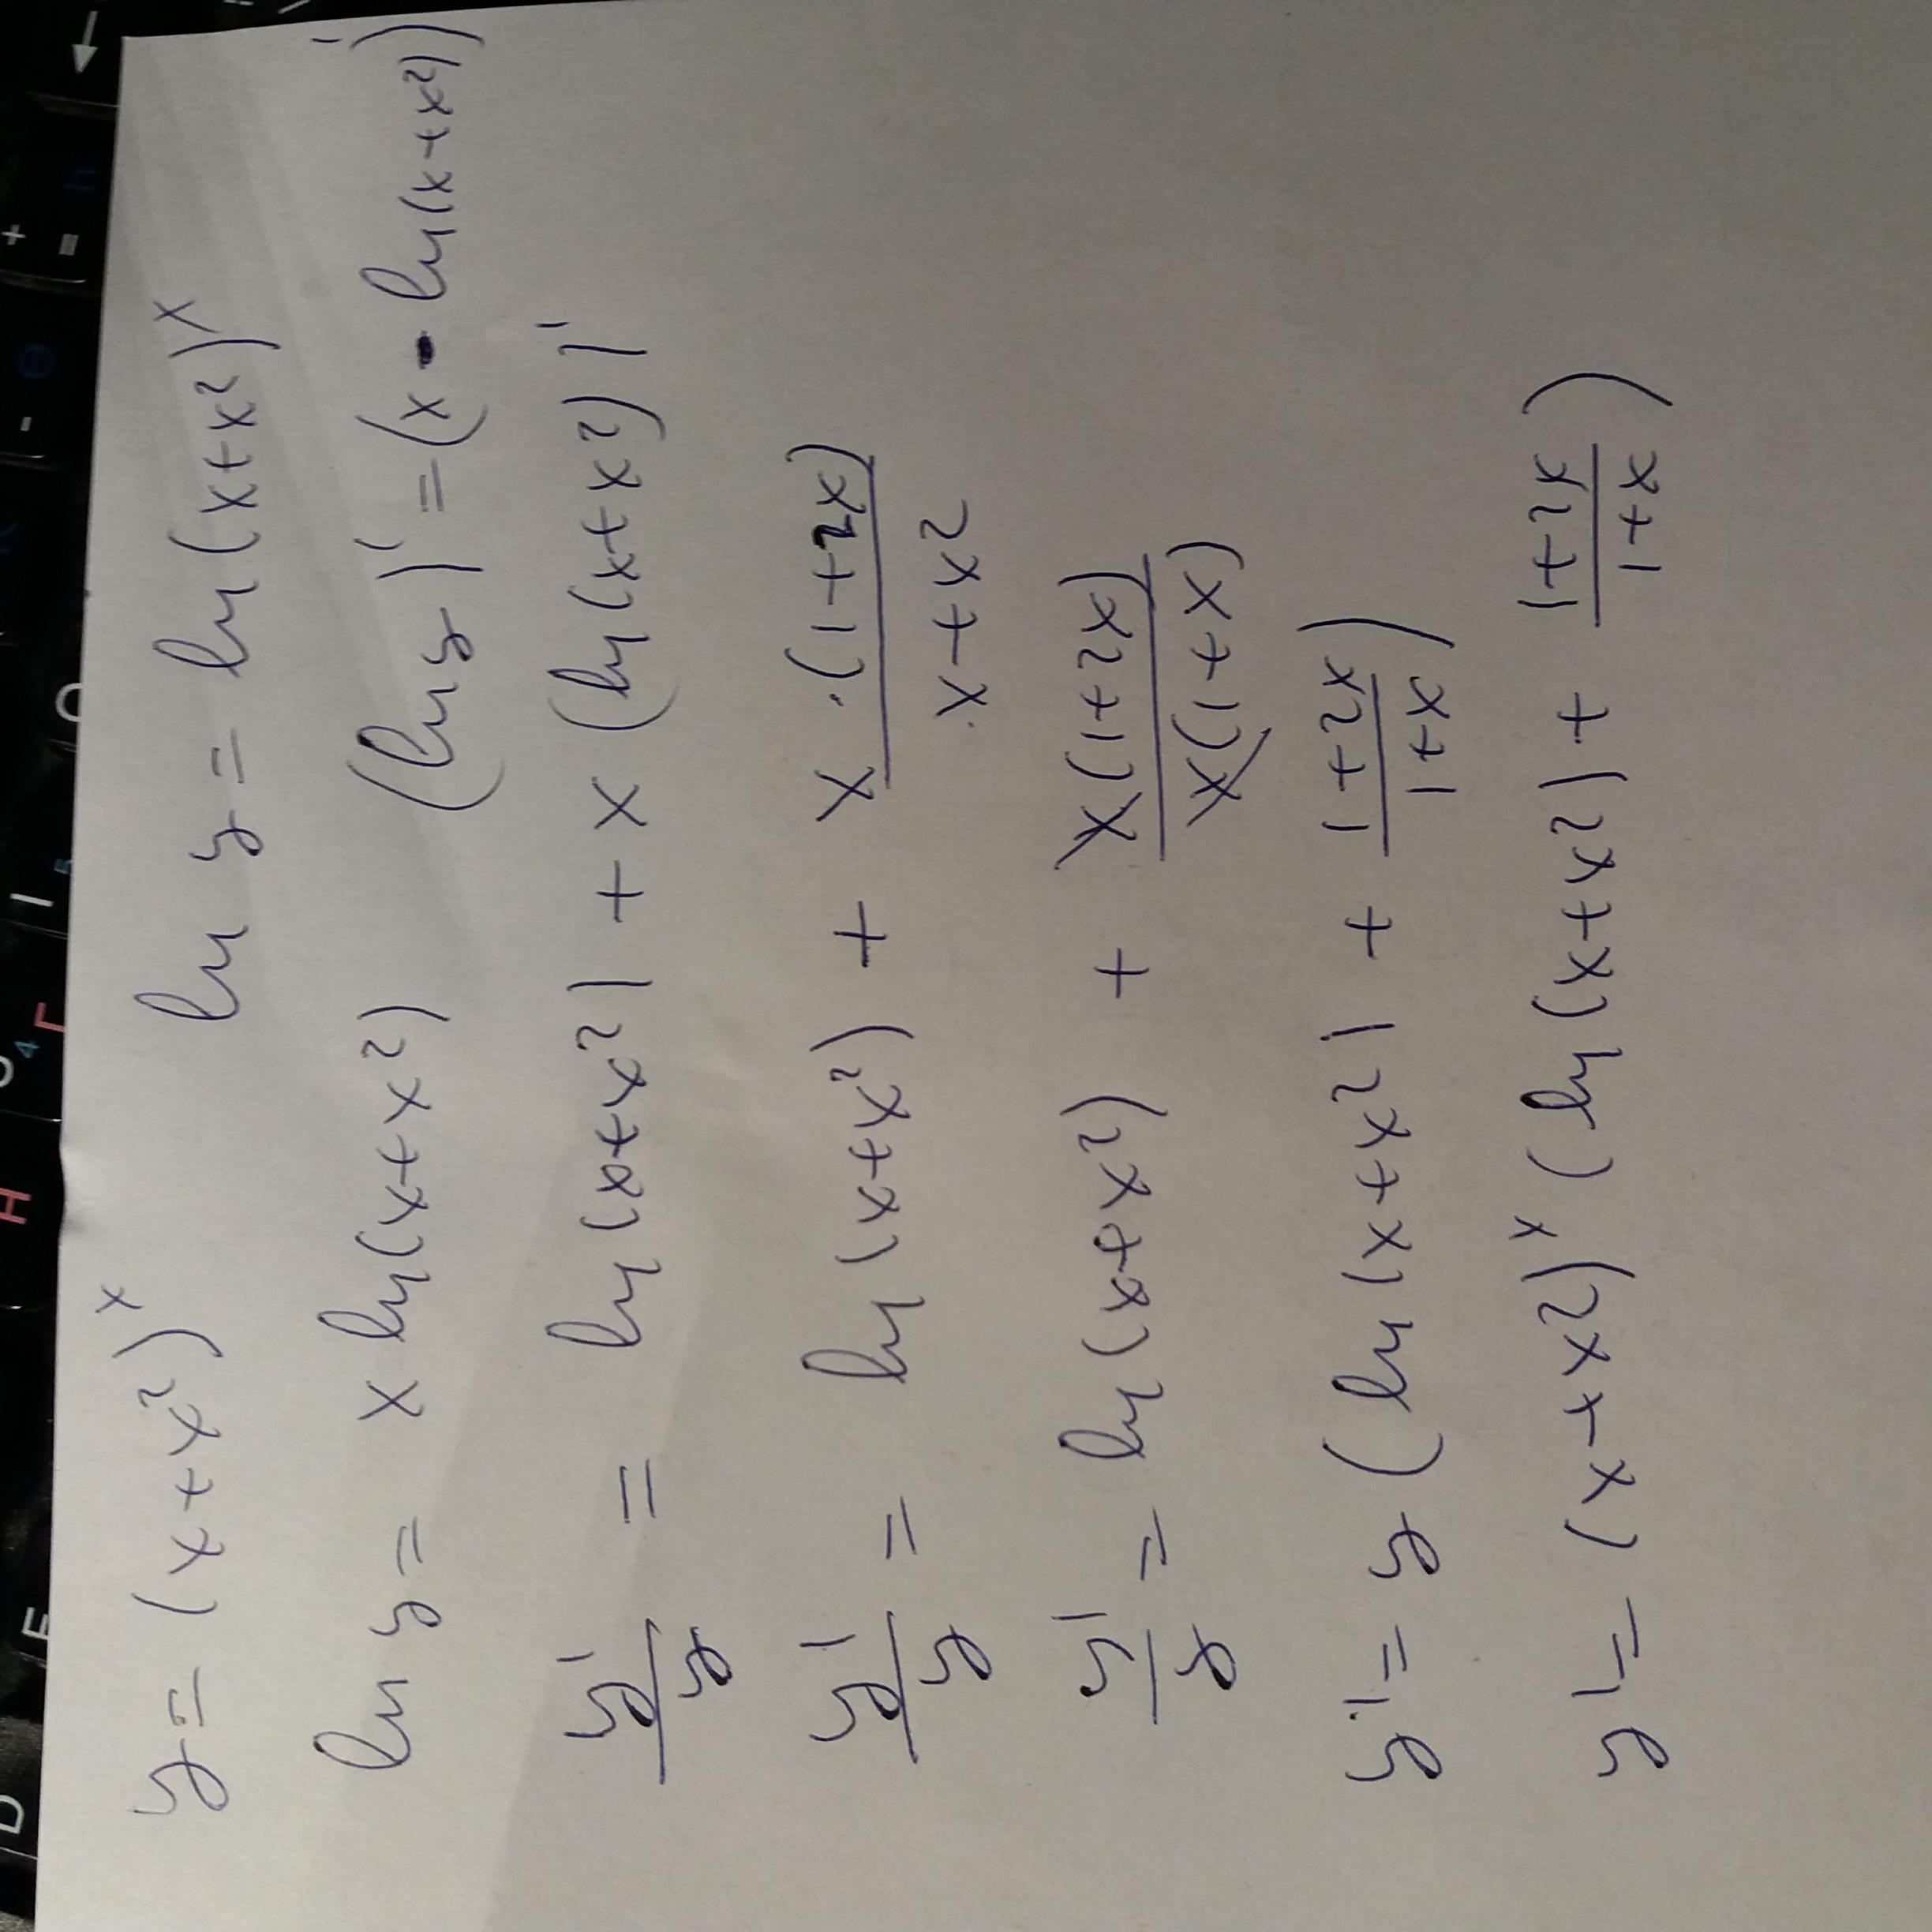 y = (x+x²)ˣ ln y = ln(x+x²)ˣ
ln y = x ln(x+x²) (ln y)' = (x · ln(x+x²))'
y'/y = ln(x+x²) + x (ln(x+x²))'
y'/y = ln(x+x²) + x·(1+2x)/x+x²
y'/y = ln(x+x²) + x(1+2x)/x(1+x)
y' = y (ln(x+x²) + 1+2x/1+x)
y' = (x+x²)ˣ (ln(x+x²) + 1+2x/1+x)